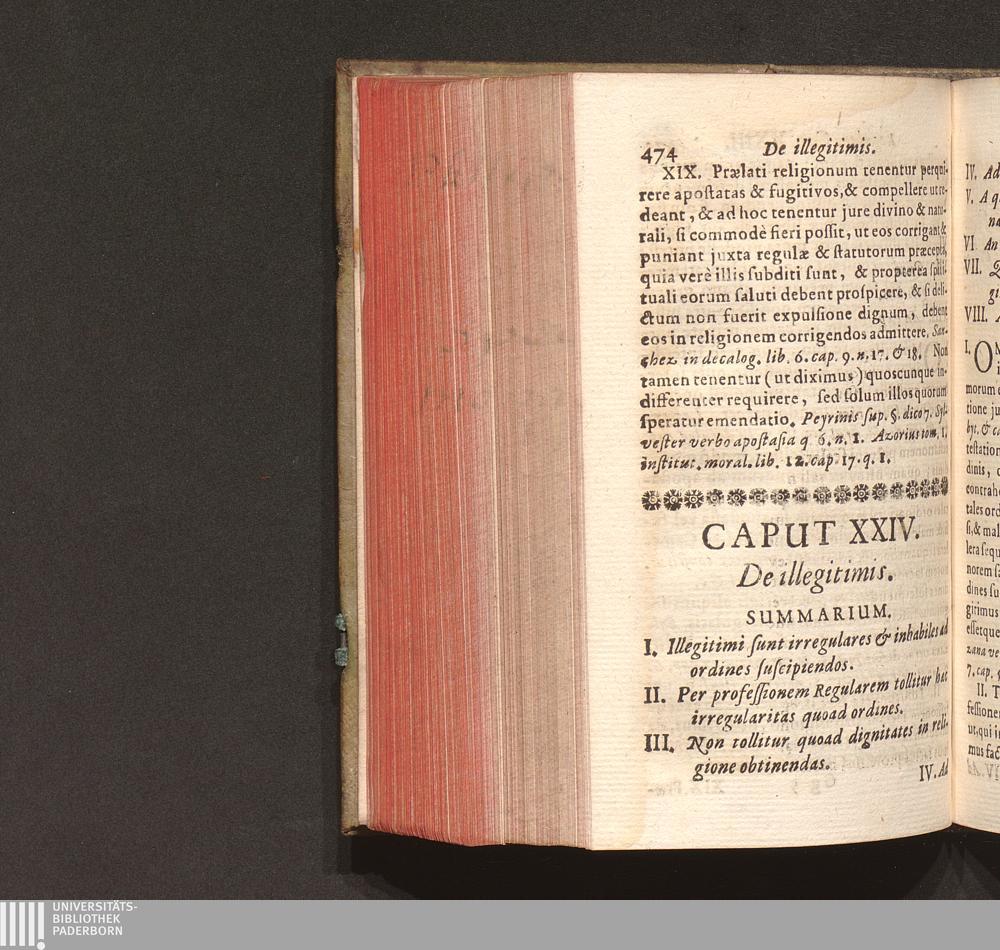 474 De illegitimis.
XIX. Prælati religionum tenentur perqui-
rere apoſtatas & fugitivos, & compellere ut re-
deant, & ad hoc tenentur jure divino & natu-
rali, ſi commodè fieri poſſit, ut eos corrigant &
puniant juxta regulæ & ſtatutorum præcepta,
quia verè illis ſubditi ſunt, & propterea ſpiri-
tuali eorum ſaluti debent proſpicere, & ſi deli-
ctum non fuerit expulſione dignum, debent
eos in religionem corrigendos admittere. San-
chez in decalog. lib. 6. cap. 9. n. 17. & 18. Non
tamen tenentur (ut diximus) quoscunque in-
differenter requirere, ſed ſolum illos quorum
ſperatur emendatio. Peyrinis ſup. §. dico 7. Syl-
veſter verbo apoſtaſia q. 6. n. 1. Azorius tom. 1.
inſtitut. moral. lib. 12. cap. 17. q. 1.
CAPUT XXIV.
De illegitimis.
SUMMARIUM.
I. Illegitimi ſunt irregulares & inhabiles ad
ordines ſuſcipiendos.
II. Per profeſſionem Regularem tollitur hæc
irregularitas quoad ordines.
III. Non tollitur quoad dignitates in reli-
gione obtinendas.
IV. Ad
IV. Ad
V. A
VI. An
VII.
VIII.
I. O
morum
tione
teſtation
dinis,
contrah
tales ord
ſi, & mal
norem
dines
gitimus
eſſetque
zana
7. cap.
II.
feſſione
ut, qui
mus
UNIVERSITÄTS-
BIBLIOTHEK
PADERBORN